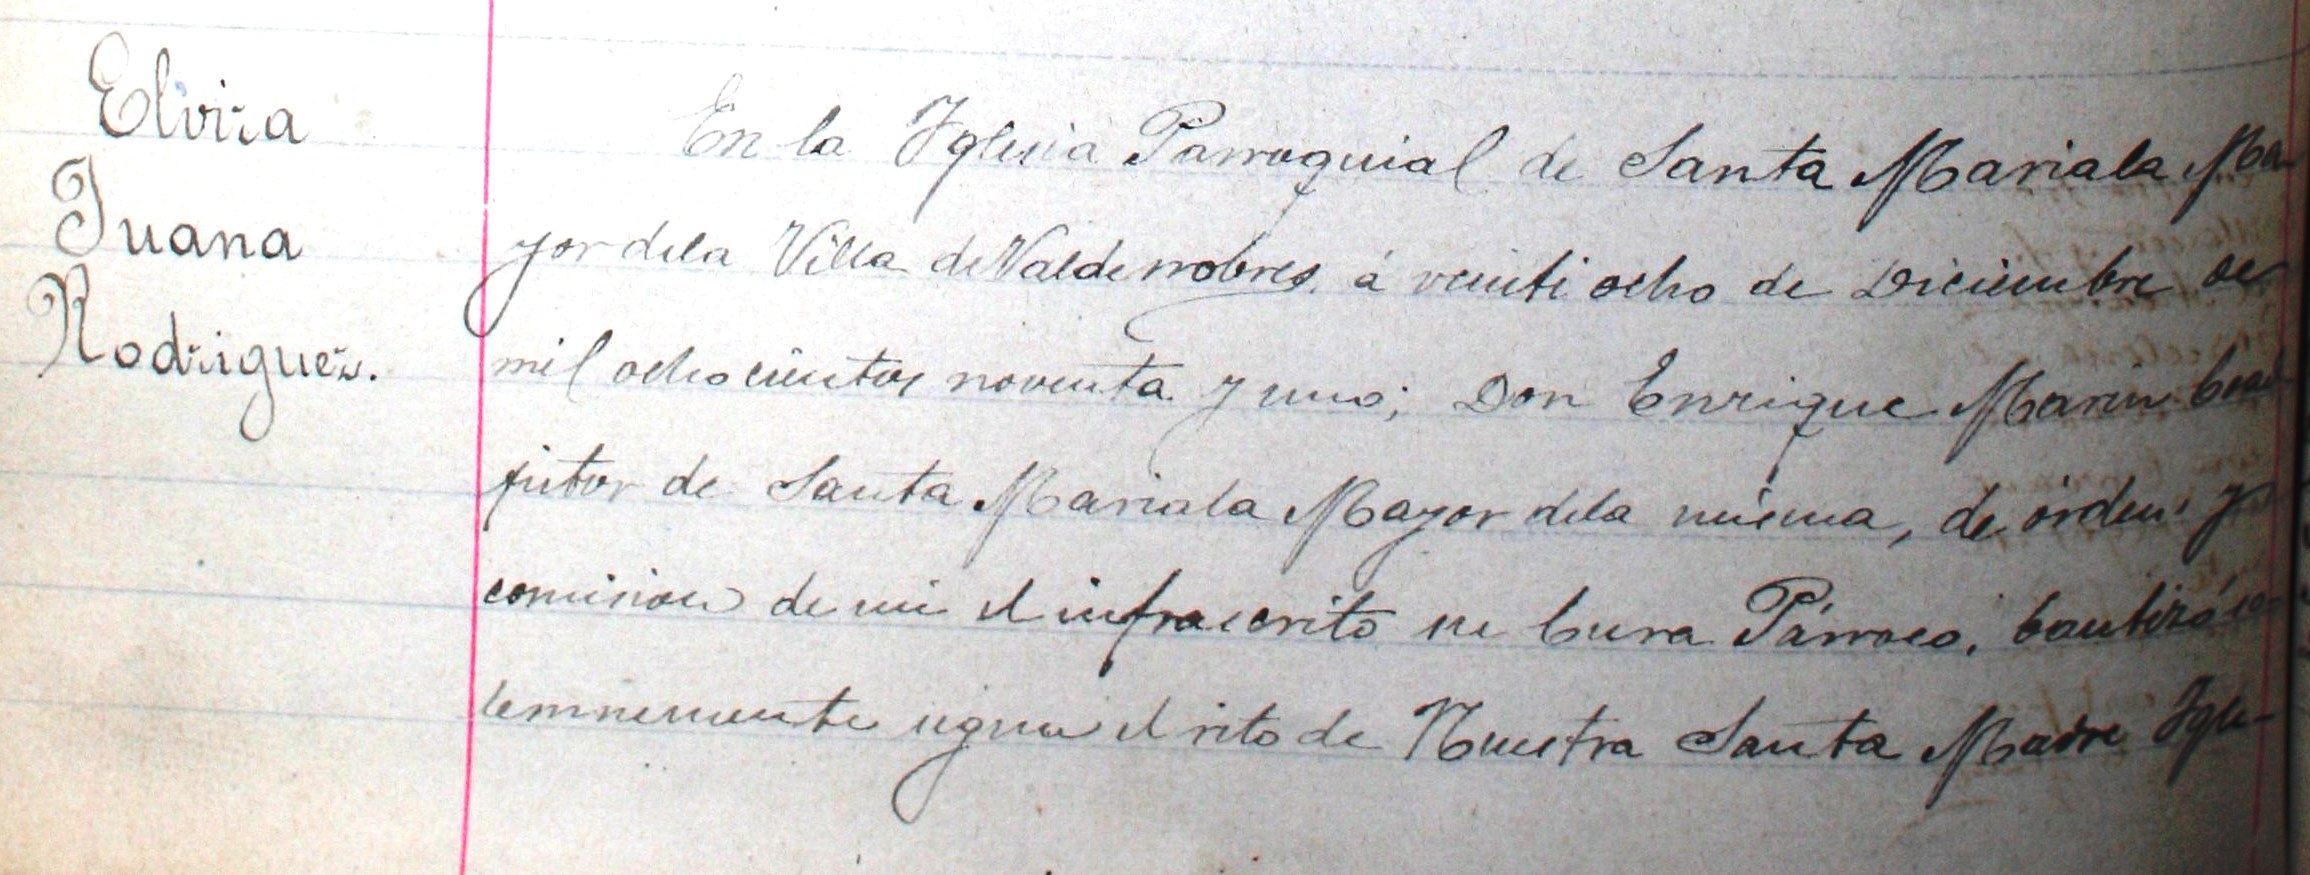 Elvira
Juana
Rodriguez.
En la Iglesia Parroquial de Santa Maria la Ma-
yor de la Villa de Valderrobres, á veinti ocho de Diciembre de
mil ochocientos noventa y uno; Don Enrique Marin Coad-
jutor de Santa Maria la Mayor de la misma, de órden y
comision de mi el infrascrito su Cura Párroco, bautizó so-
lemnemente segun el rito de Nuestra Santa Madre Igle-